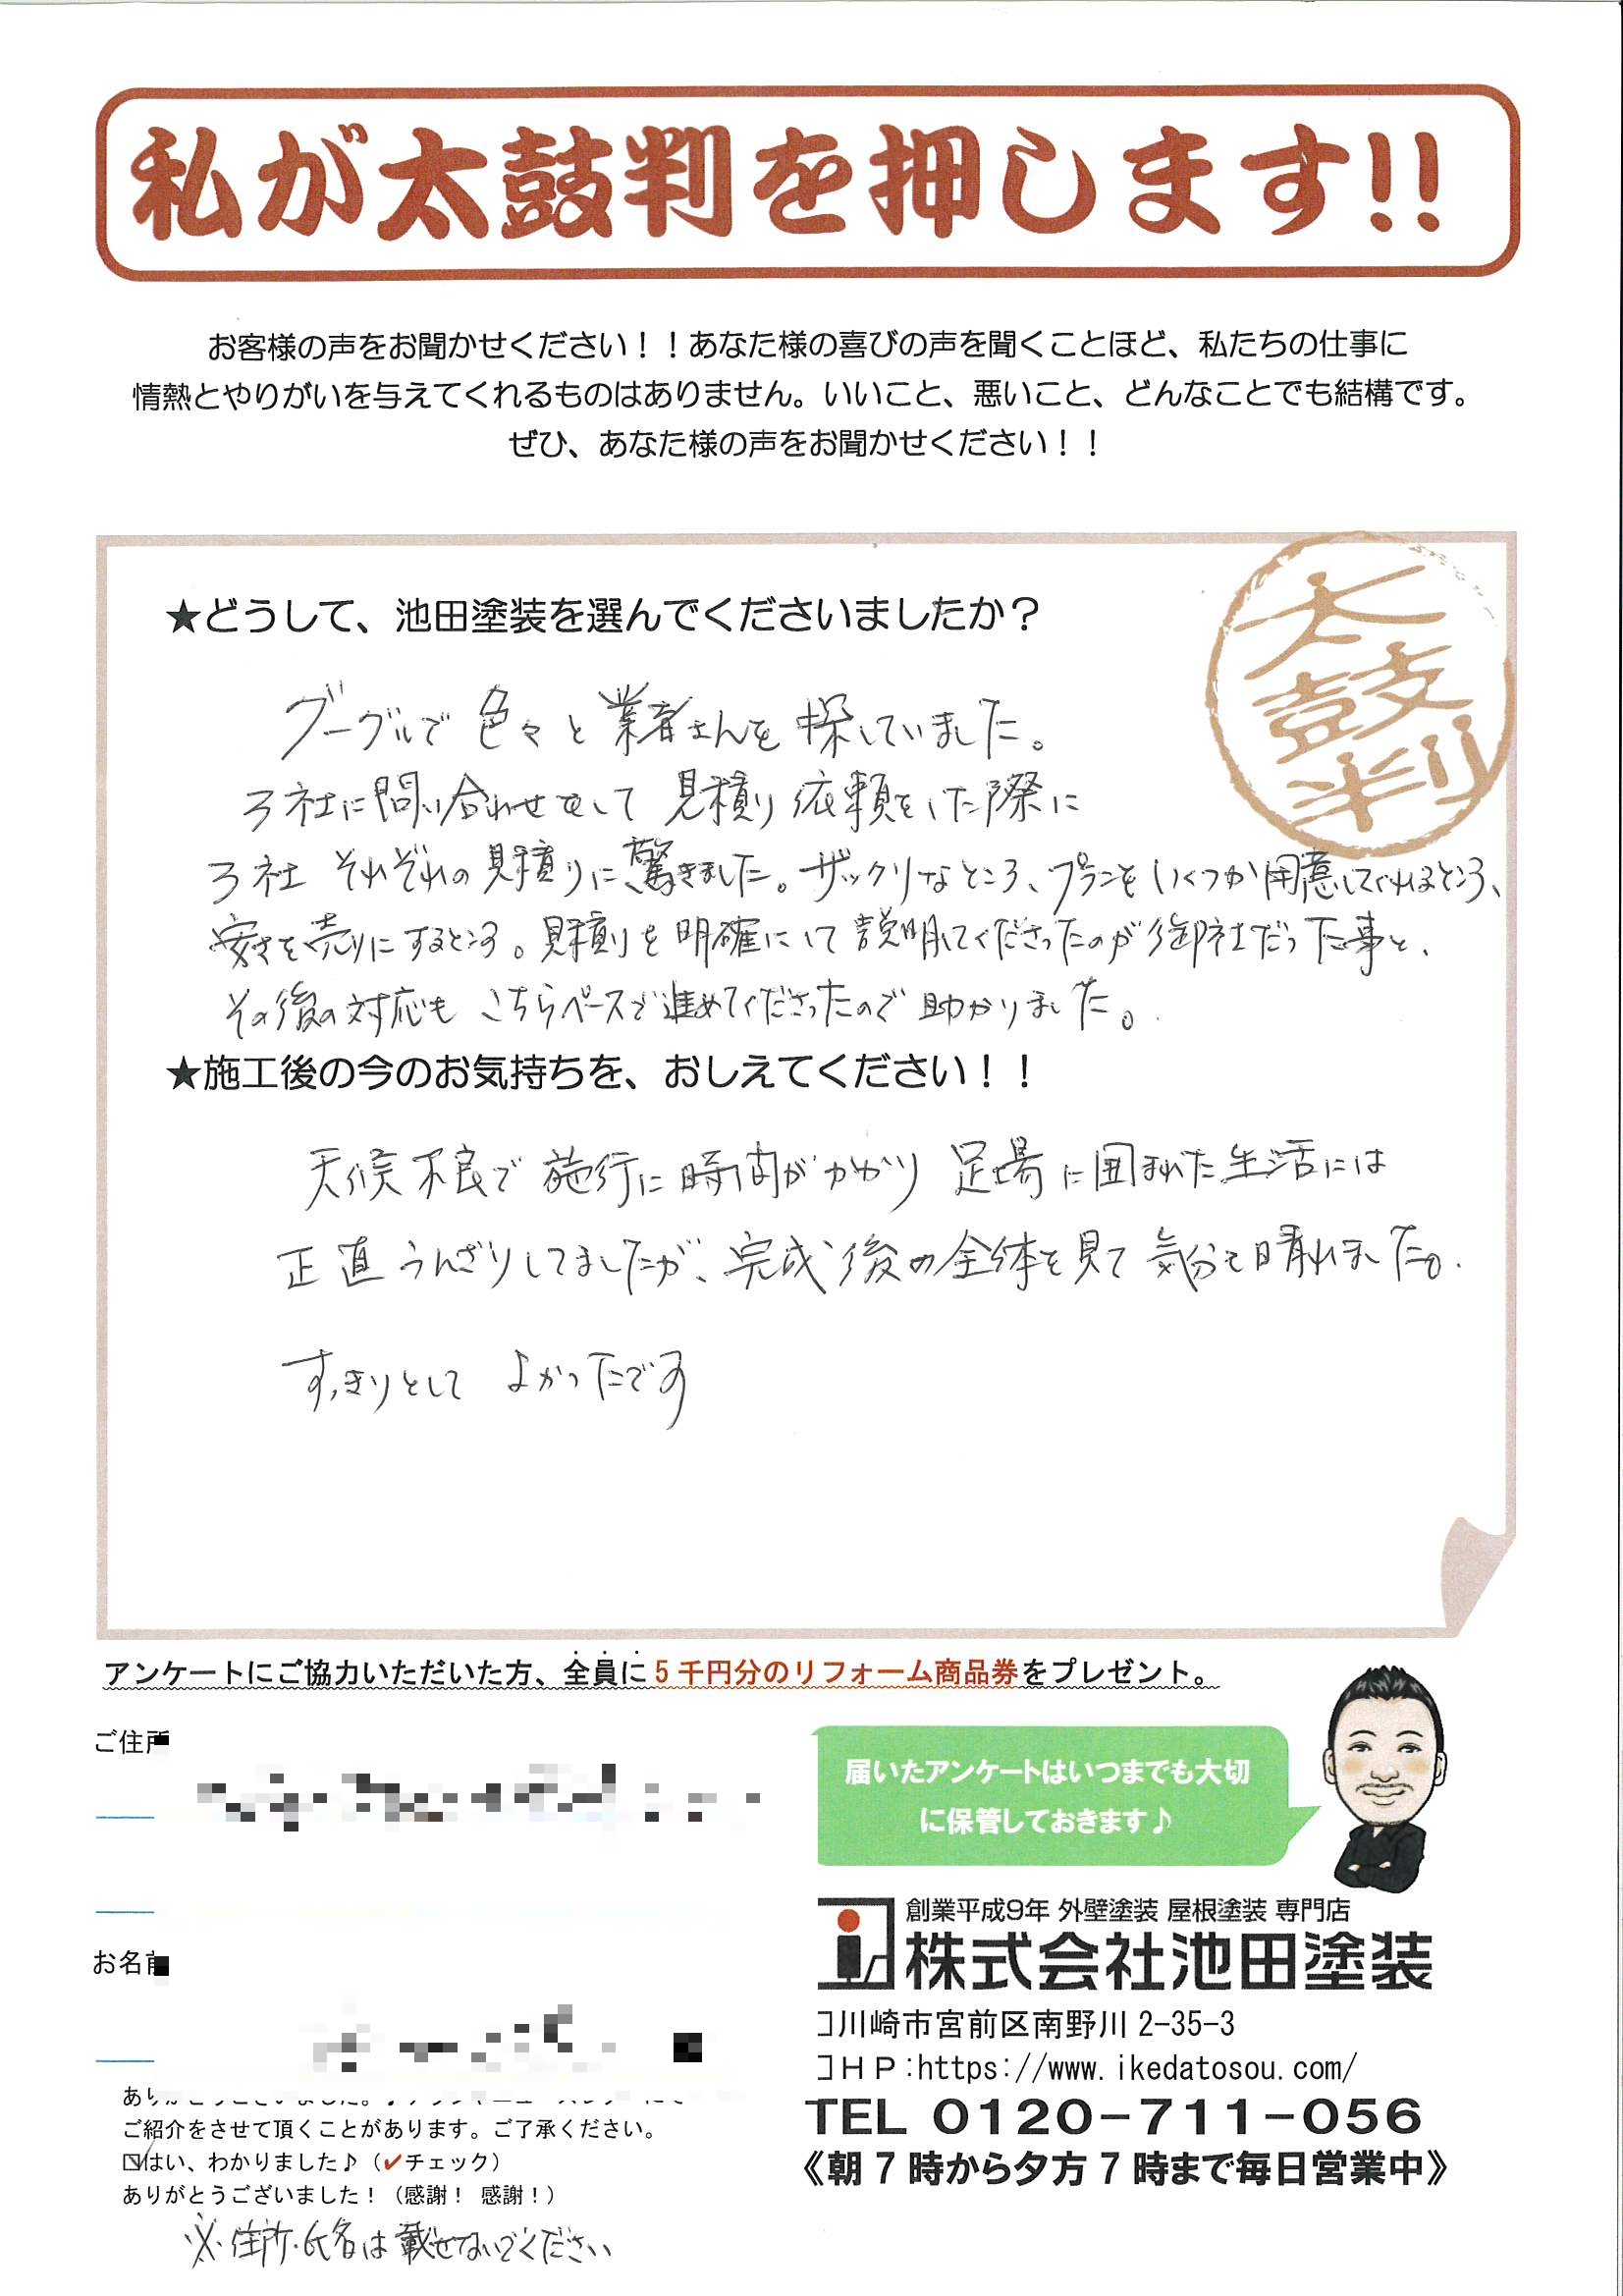 私が太鼓判を押します!!
お客様の声をお聞かせください！！あなた様の喜びの声を聞くことほど、私たちの仕事に
情熱とやりがいを与えてくれるものはありません。いいこと、悪いこと、どんなことでも結構です。
ぜひ、あなた様の声をお聞かせください！！
太鼓判
★どうして、池田塗装を選んでくださいましたか？
グーグルで色々と業者さんを探していました。
3社に問い合わせをして見積り依頼をした際に
3社それぞれの見積りに驚きました。ザックリなところ、プランをいくつか用意してくれるところ、
安さを売りにするところ。見積りを明確にして説明してくださったのが御社だった事と、
その後の対応もこちらペースで進めてくださったので助かりました。
★施工後の今のお気持ちを、おしえてください！！
天候不良で施行に時間がかかり足場に囲まれた生活には
正直うんざりしてましたが、完成後の全体を見て気分も晴れました。
すっきりとして よかったです
アンケートにご協力いただいた方、全員に５千円分のリフォーム商品券をプレゼント。
ご住所
届いたアンケートはいつまでも大切
に保管しておきます♪
お名前
創業平成9年 外壁塗装 屋根塗装 専門店
株式会社池田塗装
川崎市宮前区南野川 2-35-3
ＨＰ:https://www.ikedatosou.com/
TEL 0120-711-056
《朝７時から夕方７時まで毎日営業中》
ご紹介をさせて頂くことがあります。ご了承ください。
☑はい、わかりました♪（✔チェック）
ありがとうございました！（感謝！ 感謝！）
※住所・氏名は載せないでください